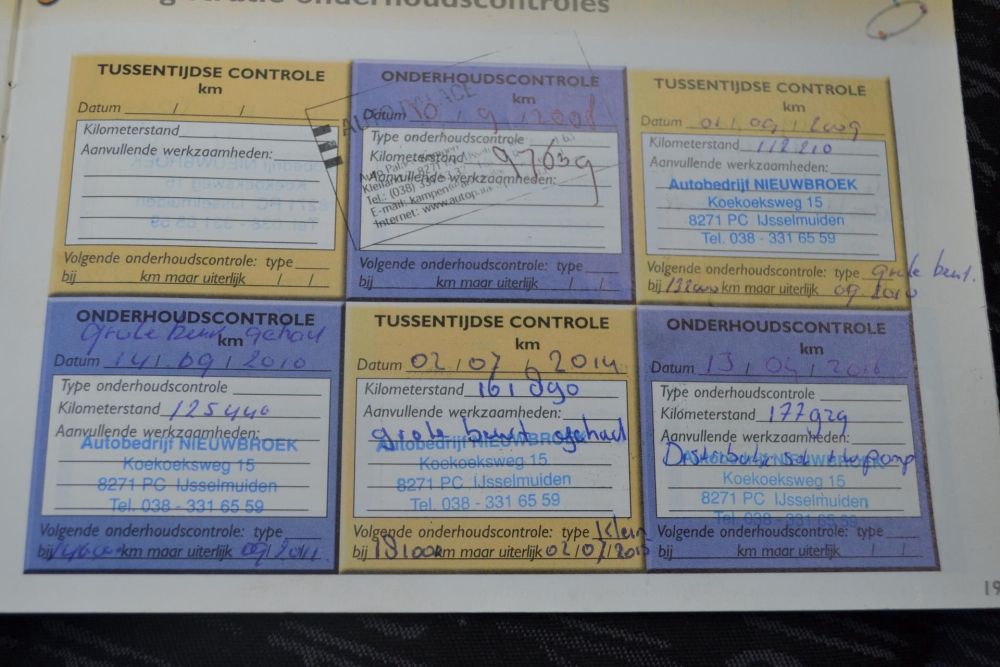 onderhoudscontroles
TUSSENTIJDSE CONTROLE
km
Datum / /
Kilometerstand
Aanvullende werkzaamheden:
Volgende onderhoudscontrole: type
bij km maar uiterlijk / /
ONDERHOUDSCONTROLE
km
Datum 10 / 9 / 2008
Type onderhoudscontrole
Kilometerstand 97639
Aanvullende werkzaamheden:
E-mail: kampen
Internet: www.autop
Volgende onderhoudscontrole: type
bij km maar uiterlijk / /
TUSSENTIJDSE CONTROLE
km
Datum 01 / 09 / 2009
Kilometerstand 112210
Aanvullende werkzaamheden:
Autobedrijf NIEUWBROEK
Koekoeksweg 15
8271 PC IJsselmuiden
Tel. 038 - 331 65 59
Volgende onderhoudscontrole: type Grote beurt.
bij 132000 km maar uiterlijk 09 2010
ONDERHOUDSCONTROLE
Grote beurt gehad
km
Datum 14 / 09 / 2010
Type onderhoudscontrole
Kilometerstand 125440
Aanvullende werkzaamheden:
Autobedrijf NIEUWBROEK
Koekoeksweg 15
8271 PC IJsselmuiden
Tel. 038 - 331 65 59
Volgende onderhoudscontrole: type
bij km maar uiterlijk 09/2011
TUSSENTIJDSE CONTROLE
km
Datum 02 / 07 / 2014
Kilometerstand 161090
Aanvullende werkzaamheden:
grote beurt gehad
Autobedrijf NIEUWBROEK
Koekoeksweg 15
8271 PC IJsselmuiden
Tel. 038 - 331 65 59
Volgende onderhoudscontrole: type Klein
bij km maar uiterlijk 02/07/2015
ONDERHOUDSCONTROLE
km
Datum 13 / 04 / 2016
Type onderhoudscontrole
Kilometerstand 177929
Aanvullende werkzaamheden:
Koekoeksweg 15
8271 PC IJsselmuiden
Tel. 038 - 331 65 59
Volgende onderhoudscontrole: type
bij km maar uiterlijk / /
19